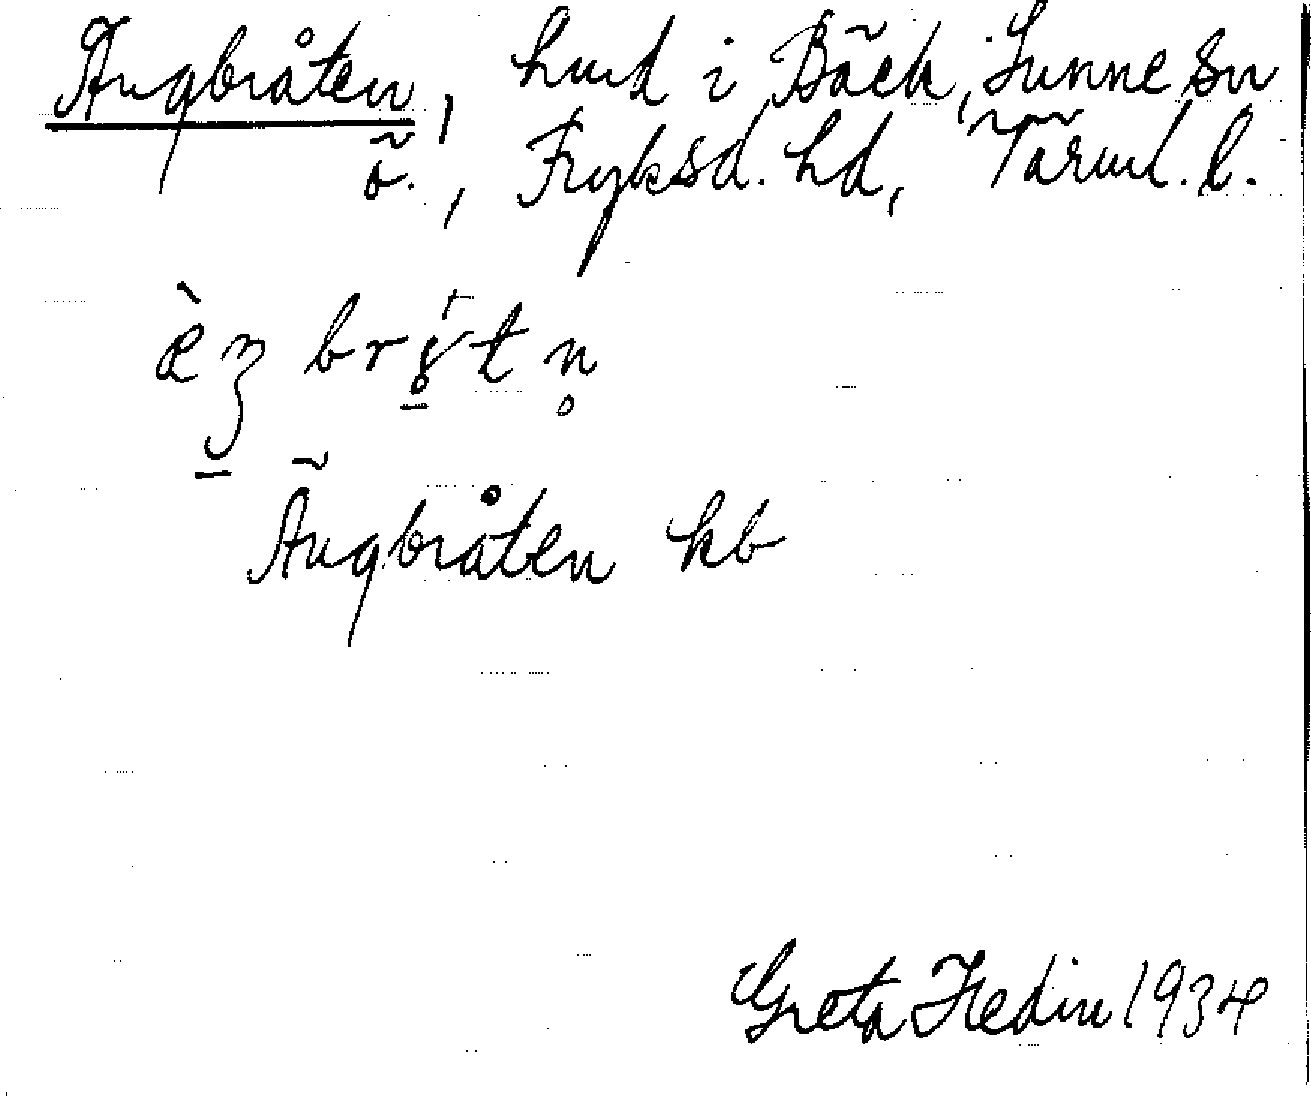 Ängbråten, hmd i Bäck, Sunne sn
ö., Fryksd. hd, Värml. l.
Ängbråten kb
Greta Hedin 1934